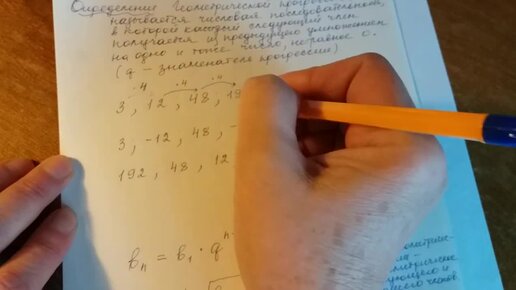 Определение Геометрической
называется числовая последовательность,
в которой каждый следующий член
получается из предыдущего умножением
на одно и тоже число, не равное 0.
(q – знаменатель прогрессии)
·4 ·4 ·4
3 ; 12 , 48 ; 19
3 ; -12 , 48 , -
192 , 48 , 12
bₙ = b₁ · qⁿ⁻